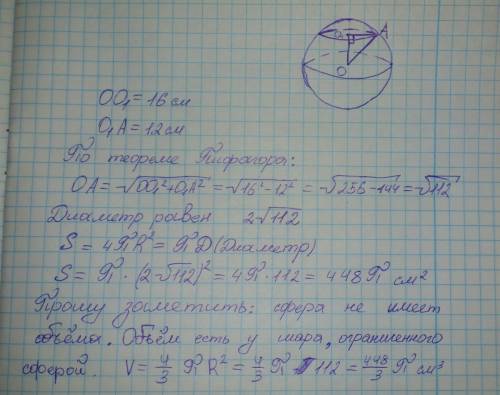 O₁ A
O
OO₁ = 16 см
O₁A = 12 см
По теореме Пифагора:
OA = √OO₁² + O₁A² = √16² - 12² = √256 - 144 = √112
Диаметр равен 2√112
S = 4ПR² = ПD (Диаметр)
S = П · (2√112)² = 4П · 112 = 448П см²
Прошу заметить: сфера не имеет
объёма. Объём есть у шара, ограниченного
сферой. V = 4/3 ПR² = 4/3 П 112 = 448/3 П см³